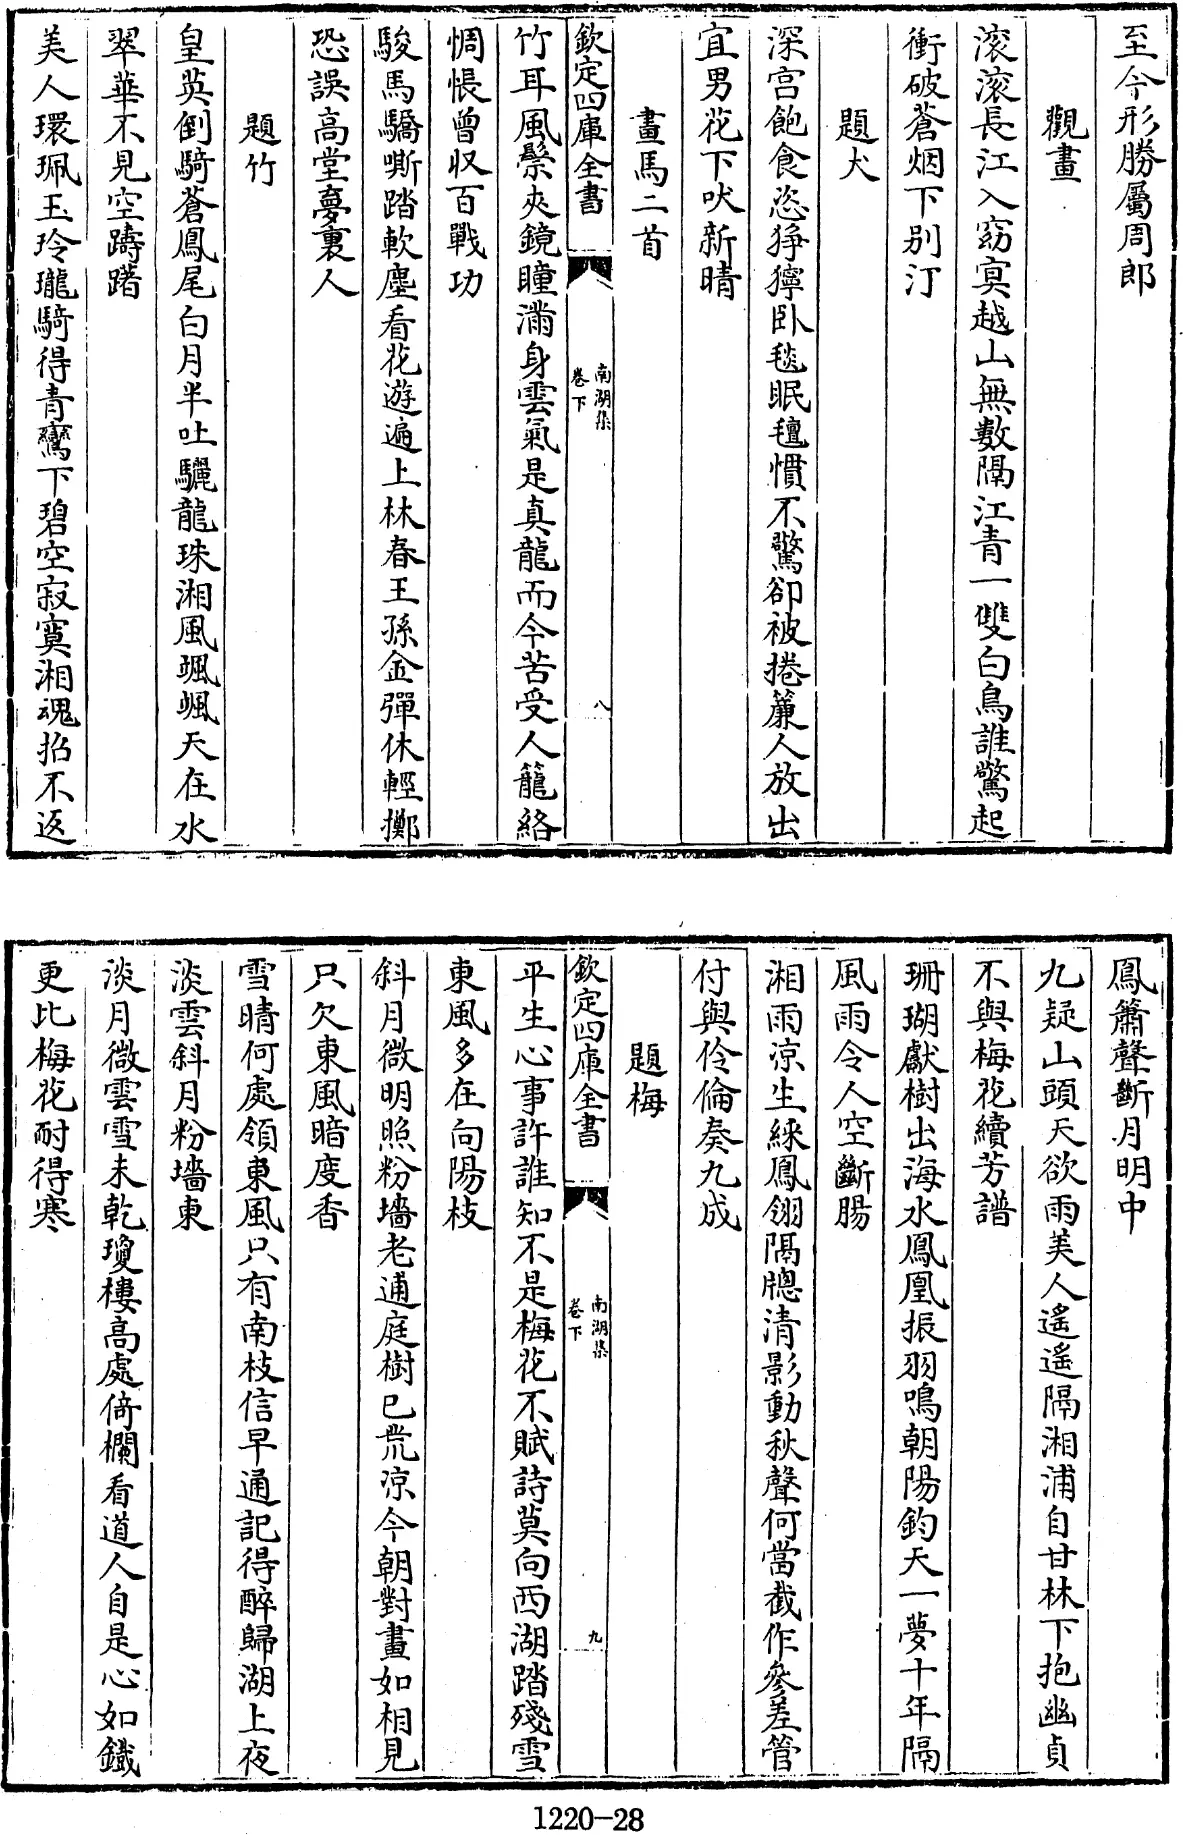 至今形勝屬周郎
觀畫
滚滚長江入窈㝠越山無數隔江青一雙白鳥誰驚起
衝破蒼烟下别汀
題犬
深宫飽食恣猙獰卧毯眠氊慣不驚卻被捲簾人放出
宜男花下吠新晴
畫馬二首
欽定四庫全書
南湖集
卷下
八
竹耳風鬃夾鏡瞳滿身雲氣是真龍而今苦受人籠絡
惆悵曾収百戰功
駿馬驕嘶踏軟塵看花遊遍上林春王孫金彈休輕擲
恐誤高堂夢裏人
題竹
皇英倒騎蒼鳳尾白月半吐驪龍珠湘風颯颯天在水
翠華不見空躊躇
美人環珮玉玲瓏騎得青鸞下碧空寂寞湘魂招不返
鳳簫聲斷月明中
九疑山頭天欲雨美人遥遥隔湘浦自甘林下抱幽貞
不與梅花續芳譜
珊瑚獻樹出海水鳳凰振羽鳴朝陽鈞天一夢十年隔
風雨令人空斷腸
湘雨凉生綵鳳翎隔牕清影動秋聲何當截作參差管
付與伶倫奏九成
題梅
欽定四庫全書
南湖集
卷下
九
平生心事許誰知不是梅花不賦詩莫向西湖踏殘雪
東風多在向陽枝
斜月微明照粉墻老逋庭樹已荒凉今朝對畫如相見
只欠東風暗度香
雪晴何處領東風只有南枝信早通記得醉歸湖上夜
淡雲斜月粉墻東
淡月微雲雪未乾瓊樓高處倚欄看道人自是心如鐵
更比梅花耐得寒
1220-28